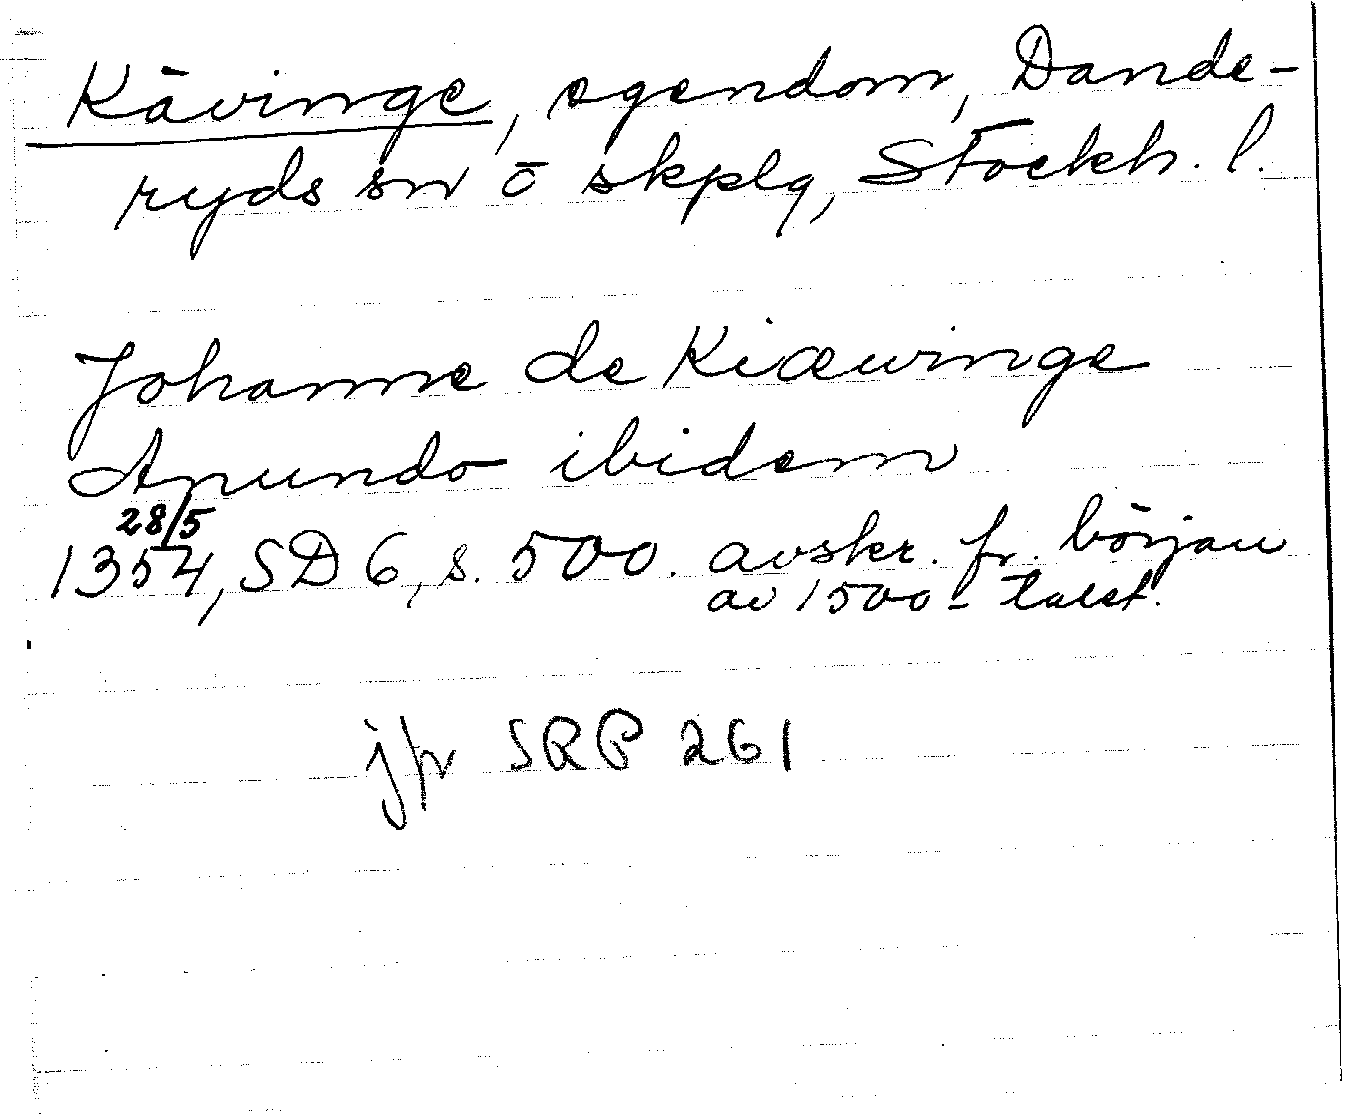 Kävinge, egendom, Dande-
ryds sn ō skplg, Stockh. l.
Johanne de Kiæwinge
Anundo ibidem
28/5
1354, SD 6, s. 500. avskr. fr. början
av 1500-talet.
jfr SRP 261